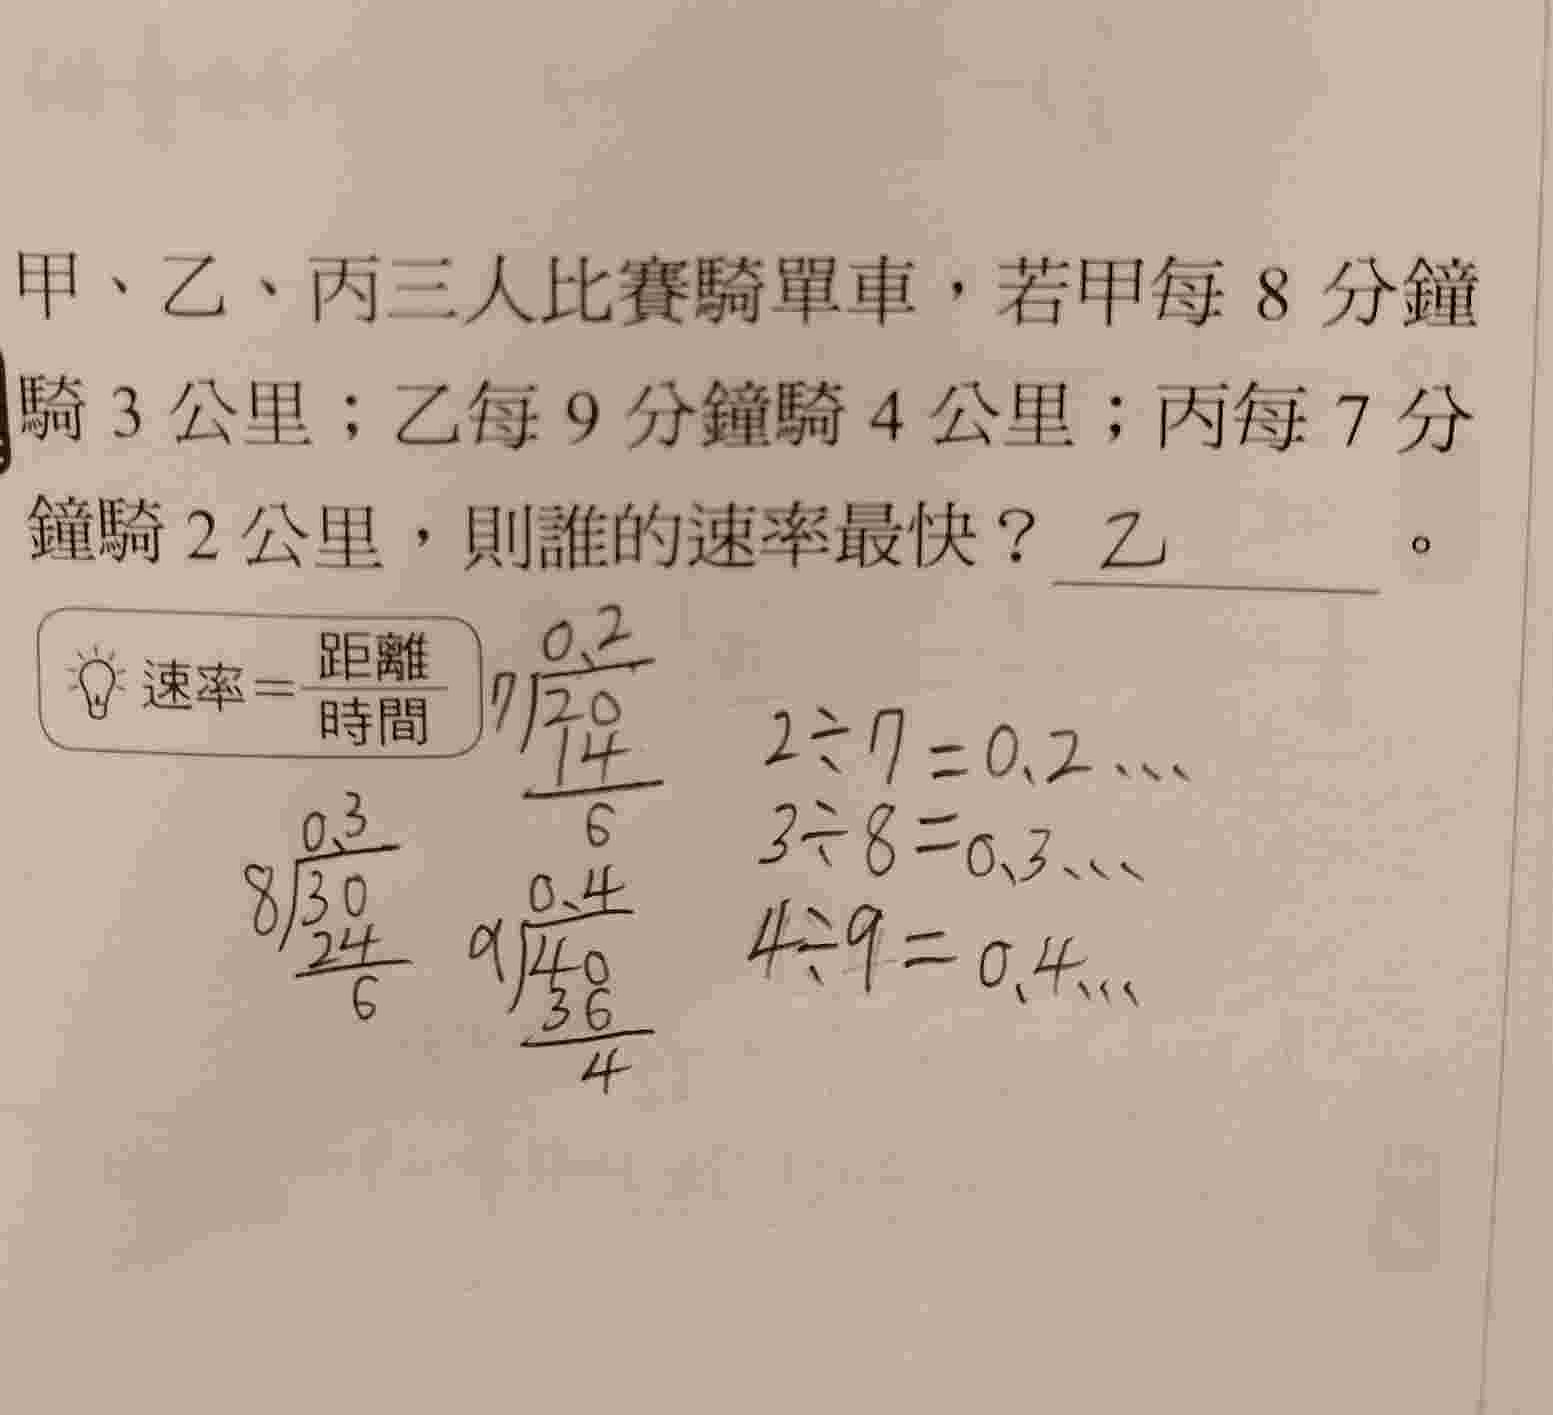 甲、乙、丙三人比賽騎單車，若甲每 8 分鐘
騎 3 公里；乙每 9 分鐘騎 4 公里；丙每 7 分
鐘騎 2 公里，則誰的速率最快？ 乙 。
速率＝距離/時間
0.2
7 20
14
6
0.3
8 30
24
6
0.4
9 40
36
4
2÷7=0.2...
3÷8=0.3...
4÷9=0.4...